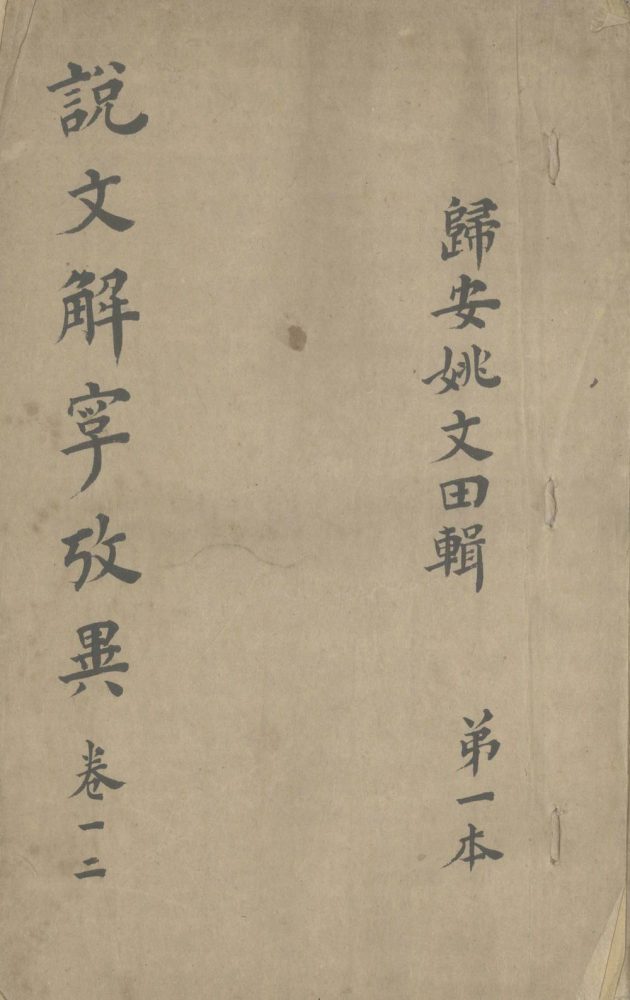 歸安姚文田輯 弟一本
說文解字攷異 卷一二